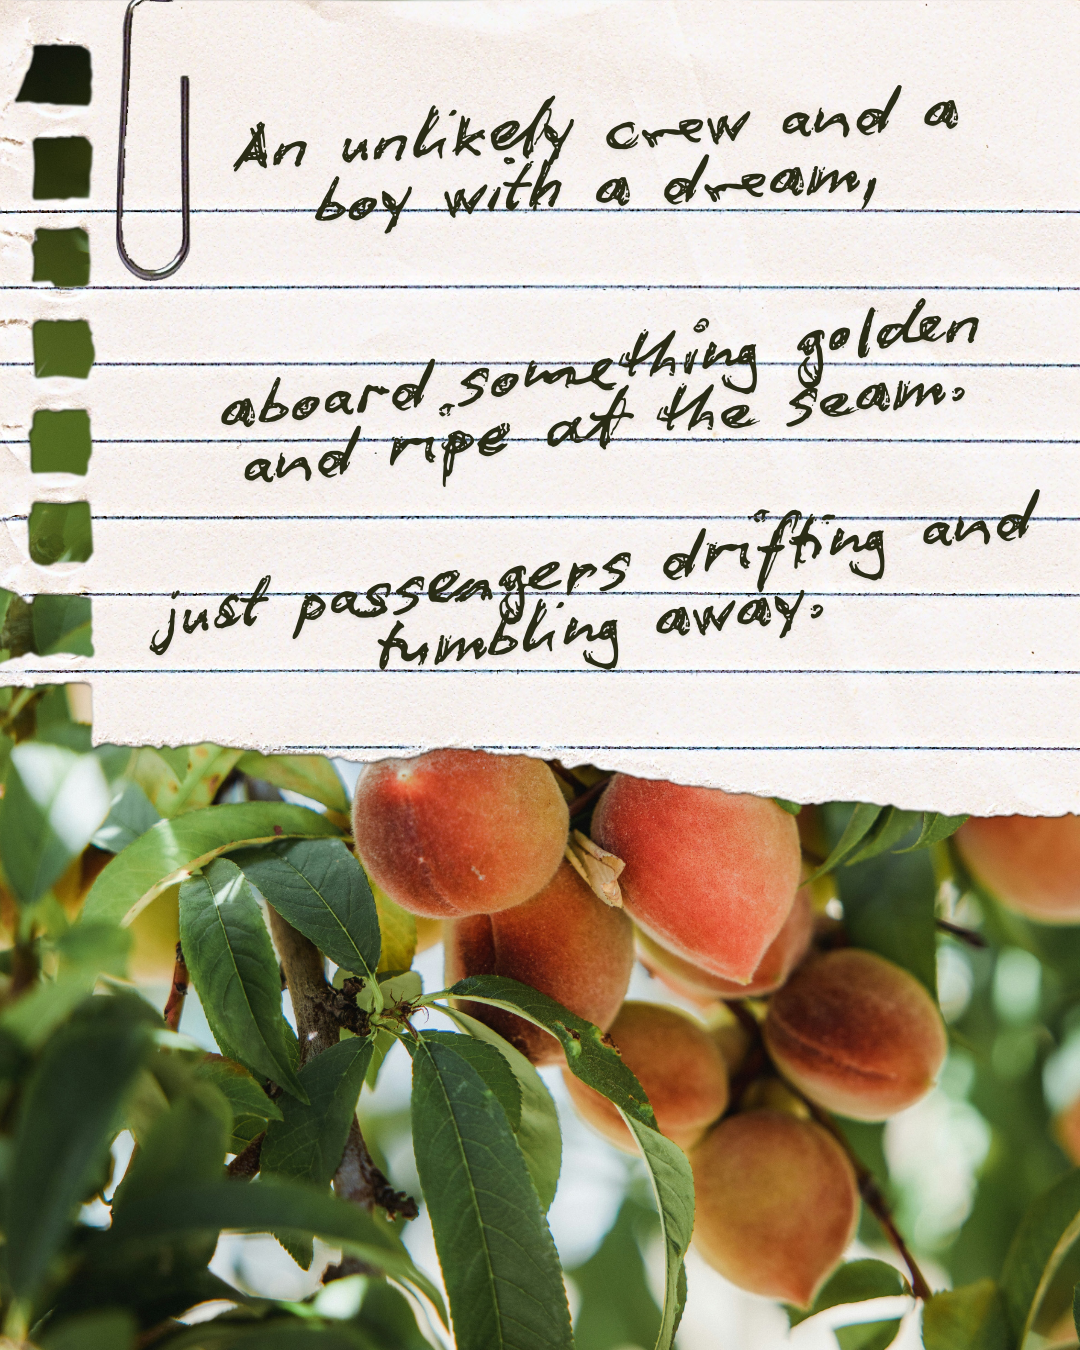 An unlikely crew and a
boy with a dream,
aboard something golden
and ripe at the seam.
just passengers drifting and
tumbling away.